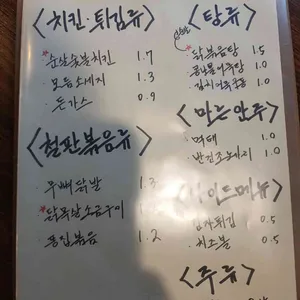 <치킨·튀김류>
*순살숯불치킨 1.7
모듬소세지 1.3
돈가스 0.9
<철판볶음류>
무뼈닭발 1.3
*닭목살소금구이
똥집볶음 1.2
<탕류>
*닭볶음탕 1.5
1.0
김치어묵우동 1.0
<마른안주>
먹태 1.0
반건조노가리 1.0
이드메뉴>
감자튀김 0.5
치즈볼 0.5
<주류>